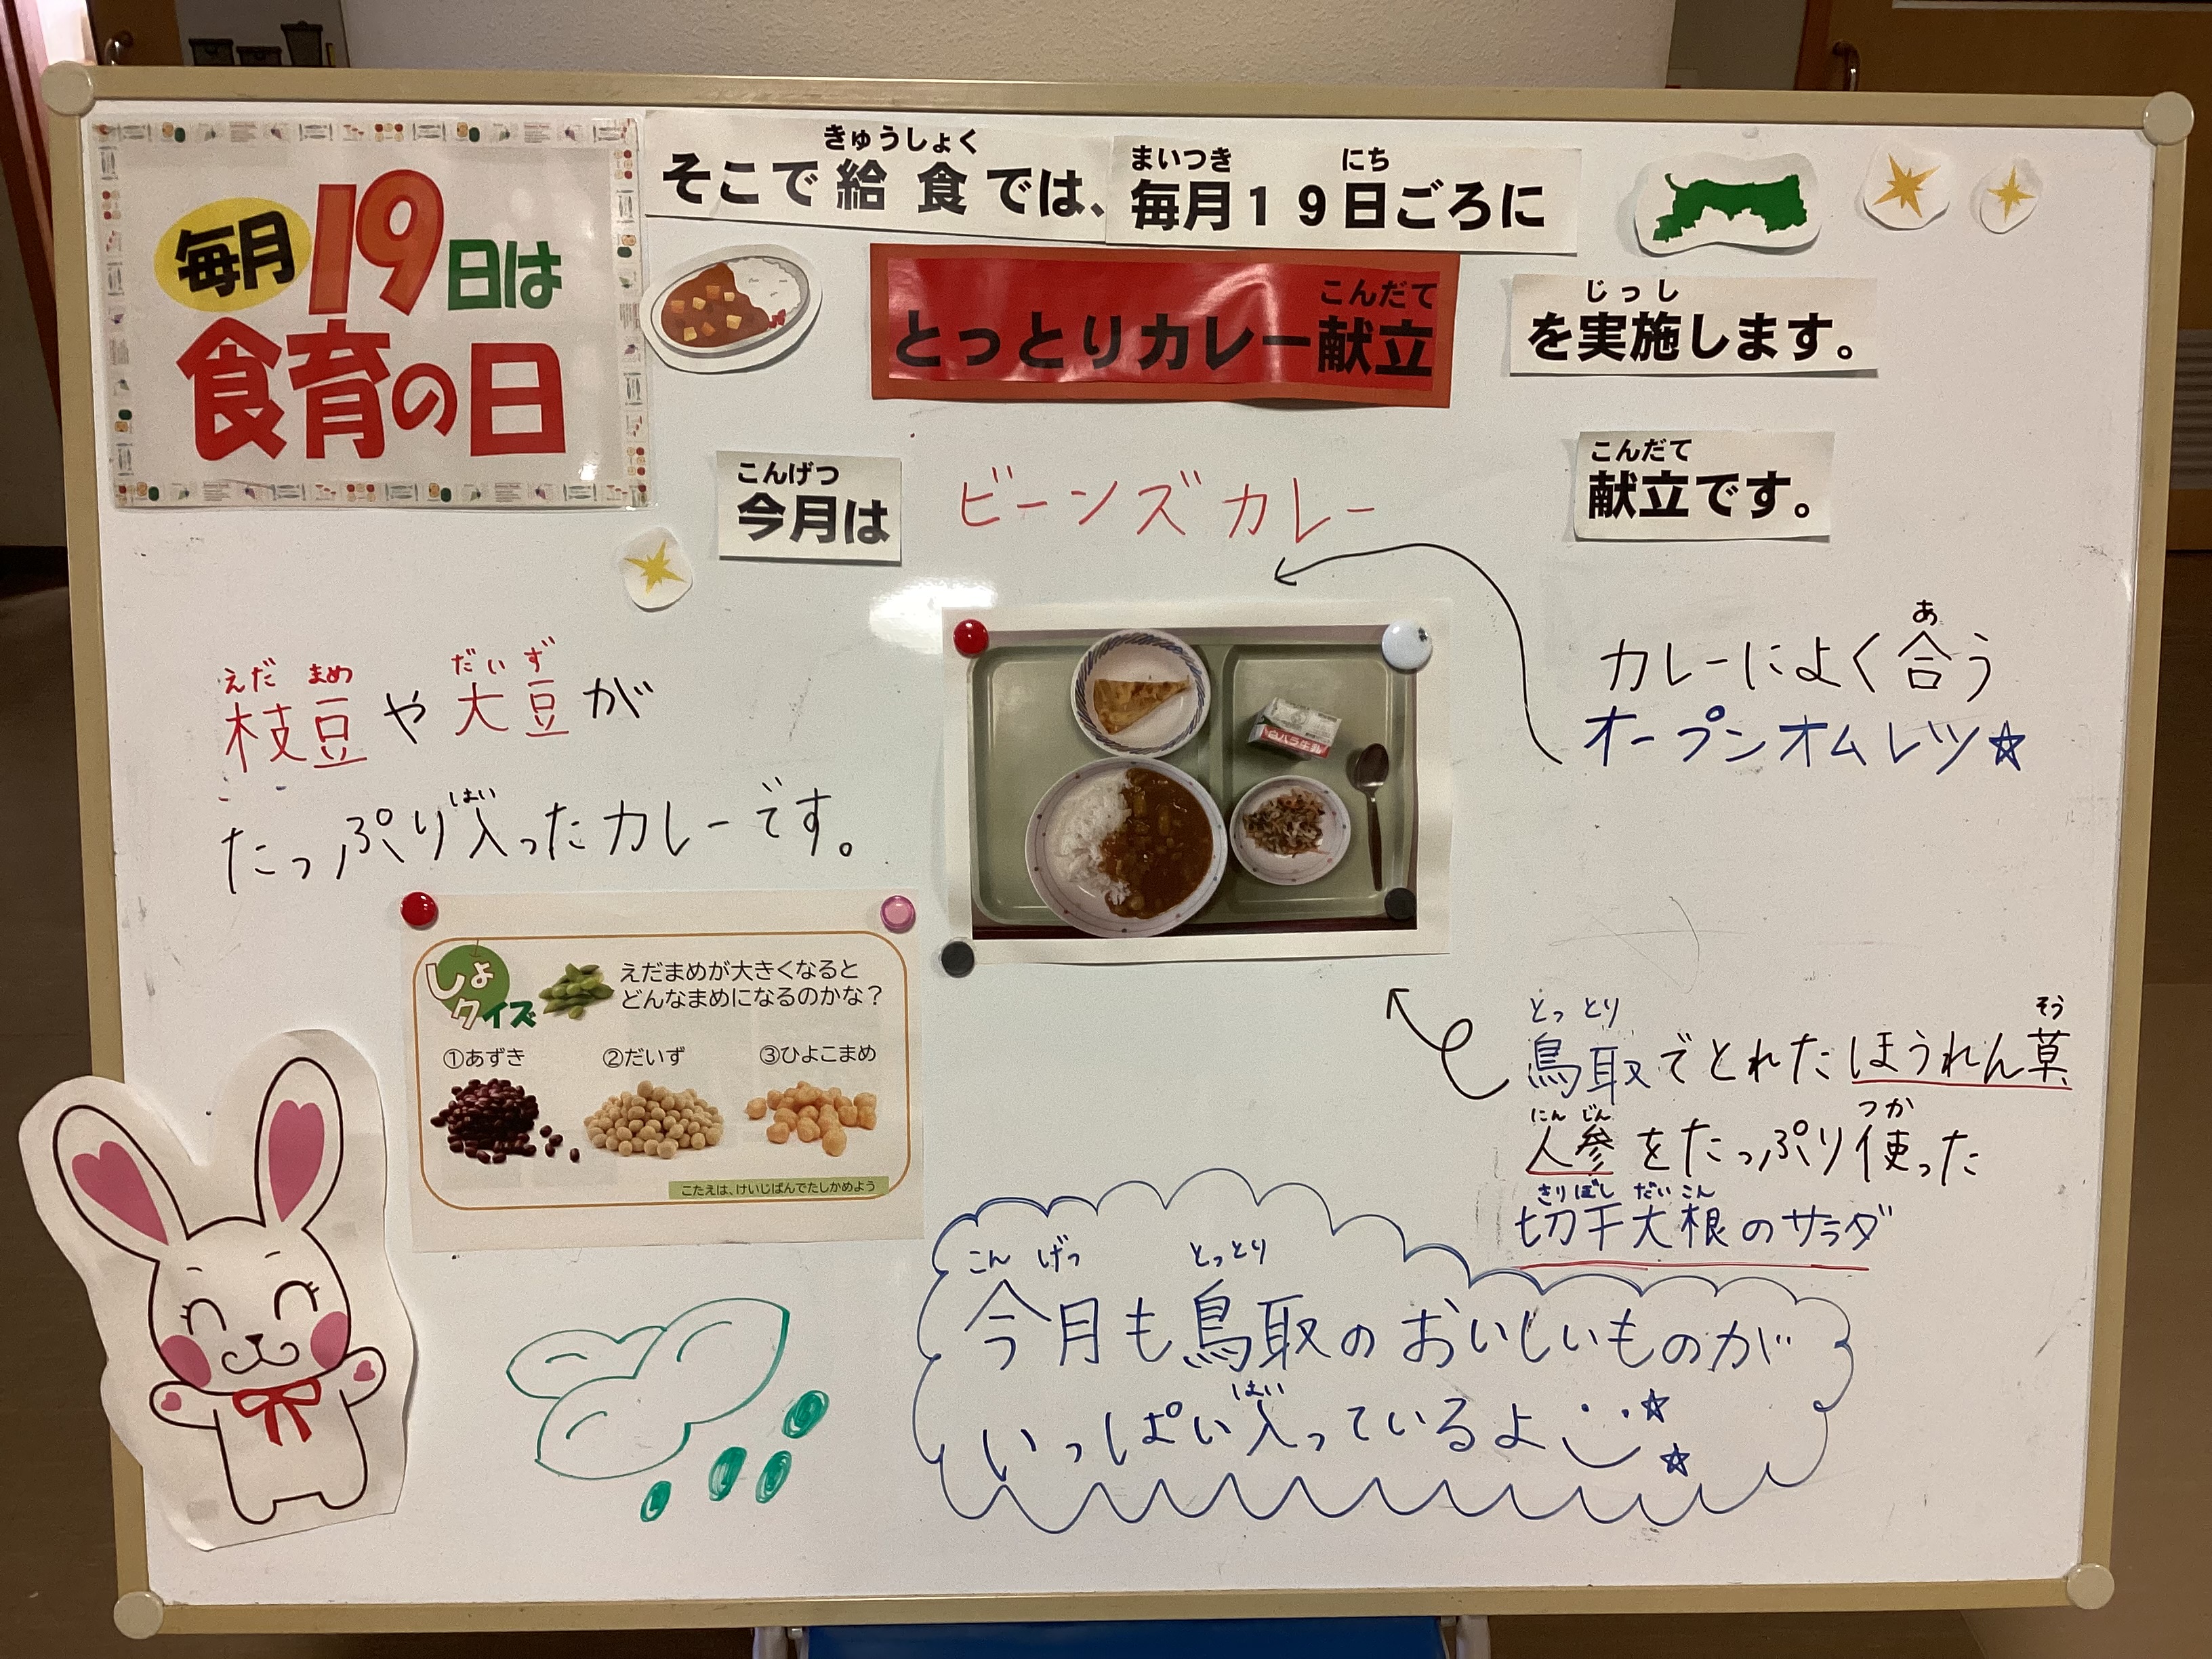 毎月19日は
食育の日
きゅうしょく
そこで給食では、
まいつき にち
毎月19日ごろに
こんだて
とっとりカレー献立
じっし
を実施します。
こんげつ
今月は
ビーンズカレー
こんだて
献立です。
えだ まめ だい ず
枝豆や大豆が
はい
たっぷり入ったカレーです。
あ
カレーによく合う
オープンオムレツ☆
白バラ牛乳
しょクイズ
えだまめが大きくなると
どんなまめになるのかな?
①あずき ②だいず ③ひよこまめ
こたえは、けいじばんでたしかめよう
とっ とり そう
鳥取でとれたほうれん草
にん じん つか
人参をたっぷり使った
きり ぼし だい こん
切干大根のサラダ
こん げつ とっとり
今月も鳥取のおいしいものが
はい
いっぱい入っているよ